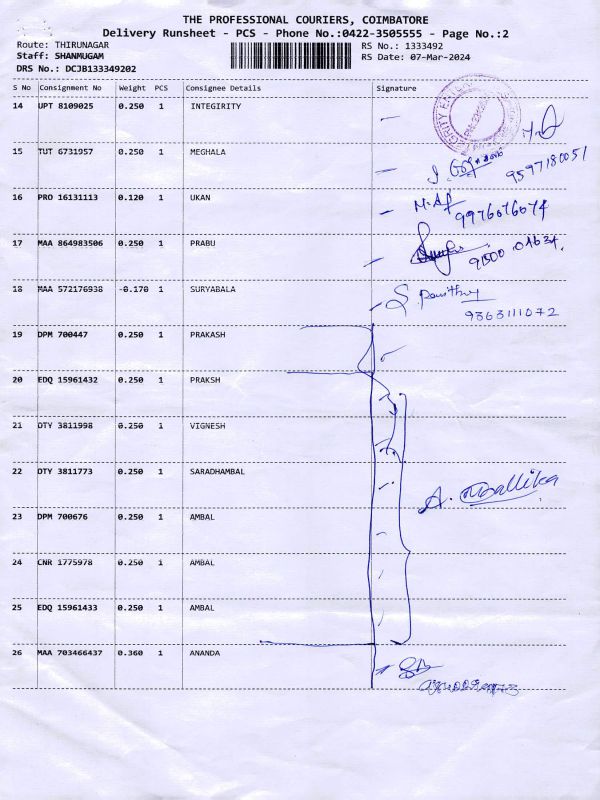 THE PROFESSIONAL COURIERS, COIMBATORE
Delivery Runsheet - PCS - Phone No.:0422-3505555 - Page No.:2
Route: THIRUNAGAR
RS No.: 1333492
Staff: SHANMUGAM
RS Date: 07-Mar-2024
DRS No.: DCJB133349202
S No Consignment No Weight PCS Consignee Details Signature
14 UPT 8109025 0.250 1 INTEGIRITY
15 TUT 6731957 0.250 1 MEGHALA
9597180051
16 PRO 16131113 0.120 1 UKAN
9976076074
17 MAA 864983506 0.250 1 PRABU
18 MAA 572176938 -0.170 1 SURYABALA
9363111072
19 DPM 700447 0.250 1 PRAKASH
20 EDQ 15961432 0.250 1 PRAKSH
21 OTY 3811998 0.250 1 VIGNESH
22 OTY 3811773 0.250 1 SARADHAMBAL
A. Mallika
23 DPM 700676 0.250 1 AMBAL
24 CNR 1775978 0.250 1 AMBAL
25 EDQ 15961433 0.250 1 AMBAL
26 MAA 703466437 0.360 1 ANANDA